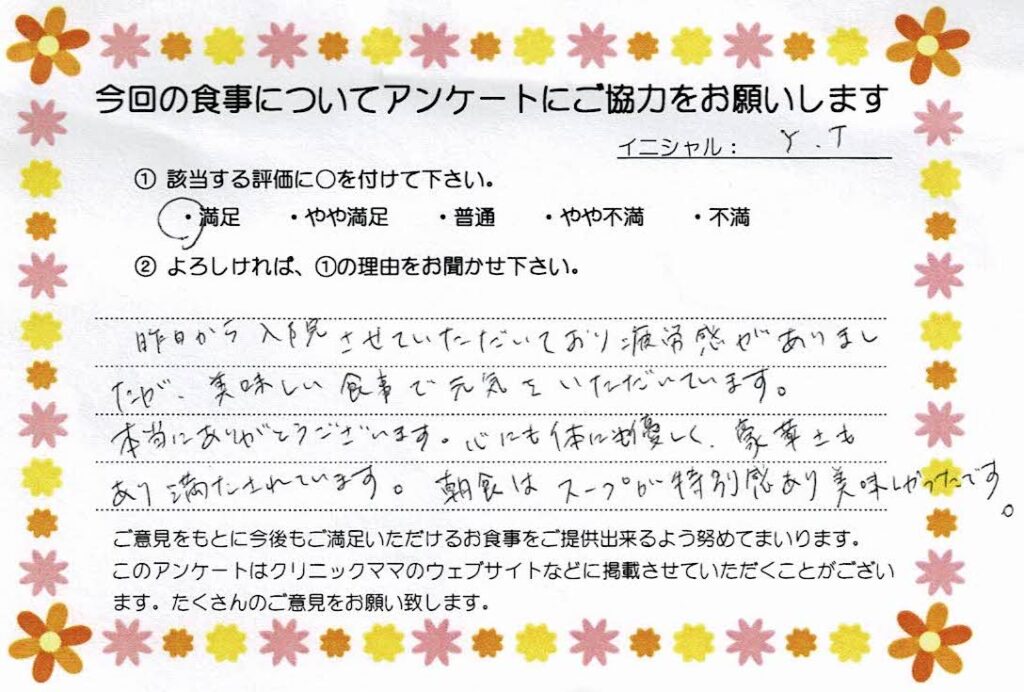 今回の食事についてアンケートにご協力をお願いします
イニシャル： Y.T
① 該当する評価に〇を付けて下さい。
・満足 ・やや満足 ・普通 ・やや不満 ・不満
② よろしければ、①の理由をお聞かせ下さい。
昨日から入院させていただいており疲労感がありまし
たが、美味しい食事で元気をいただいています。
本当にありがとうございます。心にも体にも優しく、豪華さも
あり満たされています。朝食はスープが特別感あり美味しかったです。
ご意見をもとに今後もご満足いただけるお食事をご提供出来るよう努めてまいります。
このアンケートはクリニックママのウェブサイトなどに掲載させていただくことがござい
ます。たくさんのご意見をお願い致します。